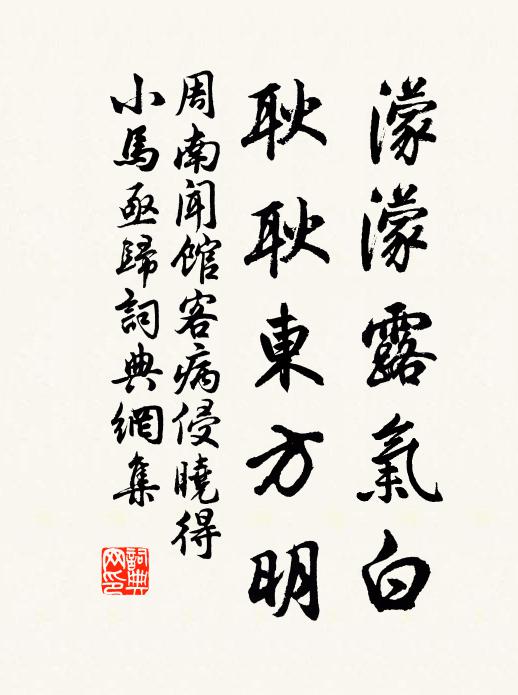 濛濛露氣白
耿耿東方明
周南聞館客病侵曉得
小馬亟歸詞典網集
詞典网印